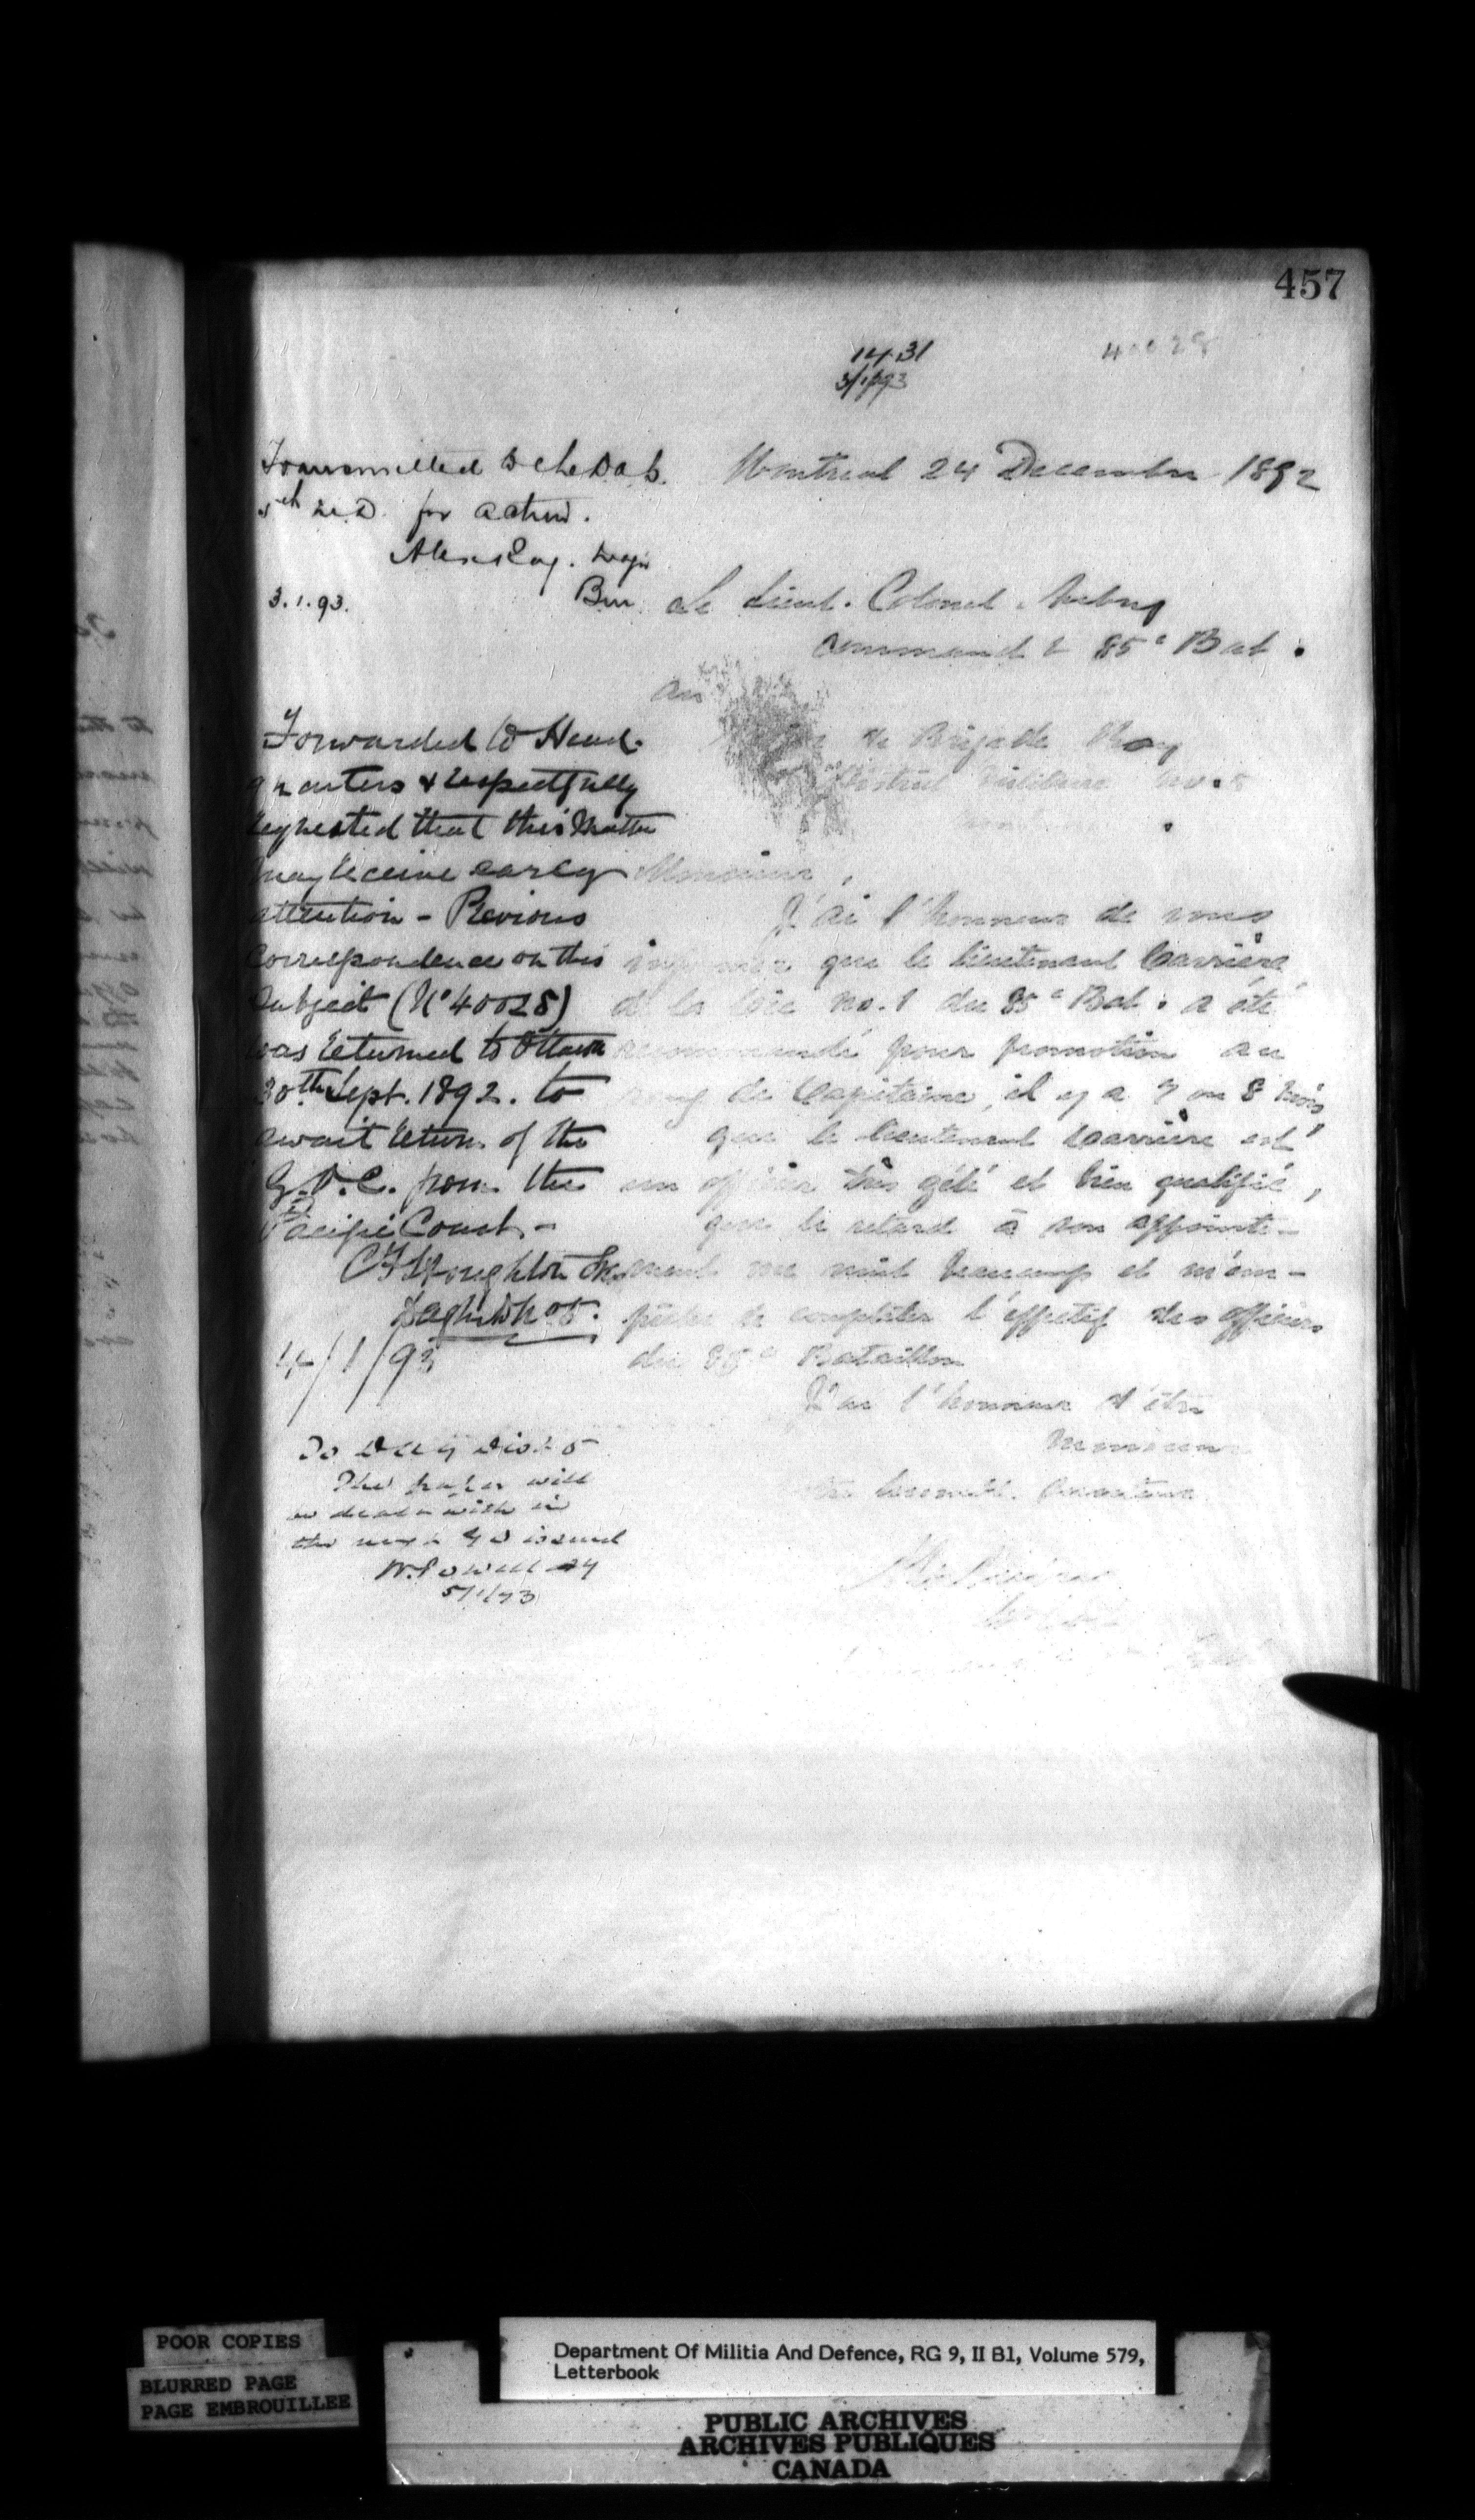 457
1431
3/1/93
40028
Transmitted to the D.a.G.
5th M.D. for action.
Major
3.1.93.
Montreal 24 Decembre 1892
Le Lieut. Colonel Aubry
Command t 85e Bat.
au
de Brigade Roy
District Militaire no. 5
Forwarded to Head-
quarters & respectfully
requested that this matter
may receive early
attention - Previous
Correspondence on this
Subject (No 40028)
was returned to Ottawa
30th Sept. 1892. to
await return of the
G.O.C. from the
Pacific Coast -
C F Houghton
D a g
4/1/93
Monsieur,
J'ai l'honneur de vous
informer que le lieutenant Carrière
de la Cie no. 1 du 85e Bat. a été
recommandé pour promotion au
rang de Capitaine, il y a 7 ou 8 mois,
que le lieutenant Carrière est
un officier très zélé et bien qualifié,
que le retard à son appointe-
ment me nuit beaucoup et m'em-
pêche de compléter l'effectif des officiers
du 85e Bataillon
J'ai l'honneur d'être
Monsieur
votre
To D A G Dist 5
This paper will
be dealt with in
the next G O issued
W. Powell AG
5/1/93
POOR COPIES
BLURRED PAGE
PAGE EMBROUILLEE
Department Of Militia And Defence, RG 9, II B1, Volume 579,
Letterbook
PUBLIC ARCHIVES
ARCHIVES PUBLIQUES
CANADA